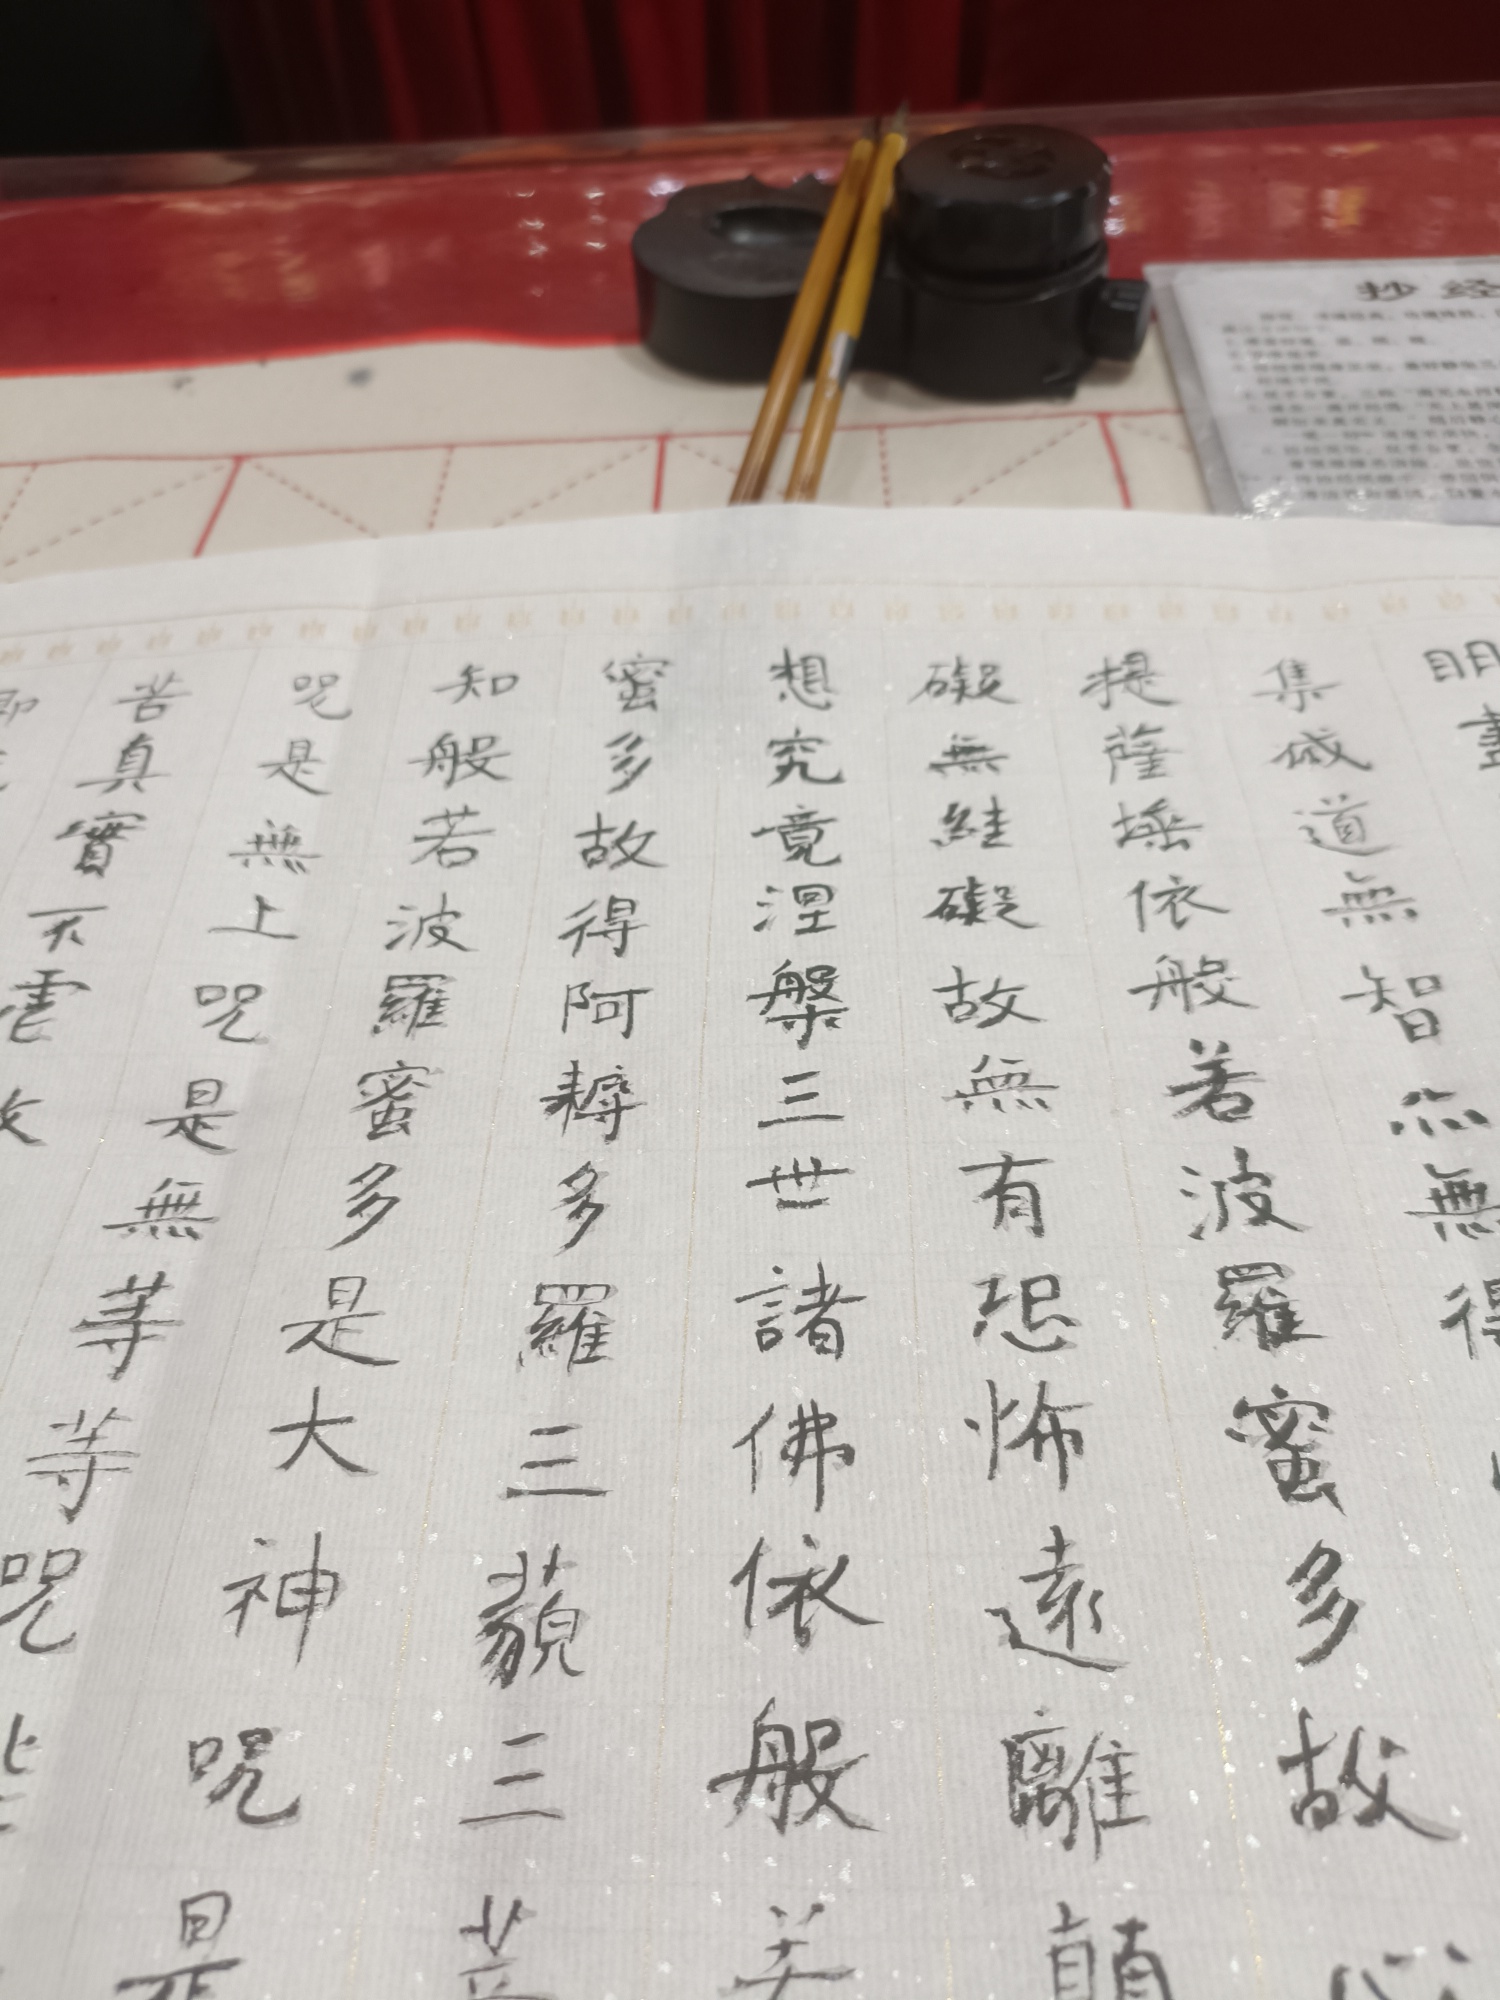 抄经
明盡
集滅道無智亦無得
提薩埵依般若波羅蜜多故心
礙無絓礙故無有恐怖遠離顛
想究竟涅槃三世諸佛依般若
蜜多故得阿耨多羅三藐三菩
知般若波羅蜜多是大神咒是
咒是無上咒是無等等咒
苦真實不虛故
即